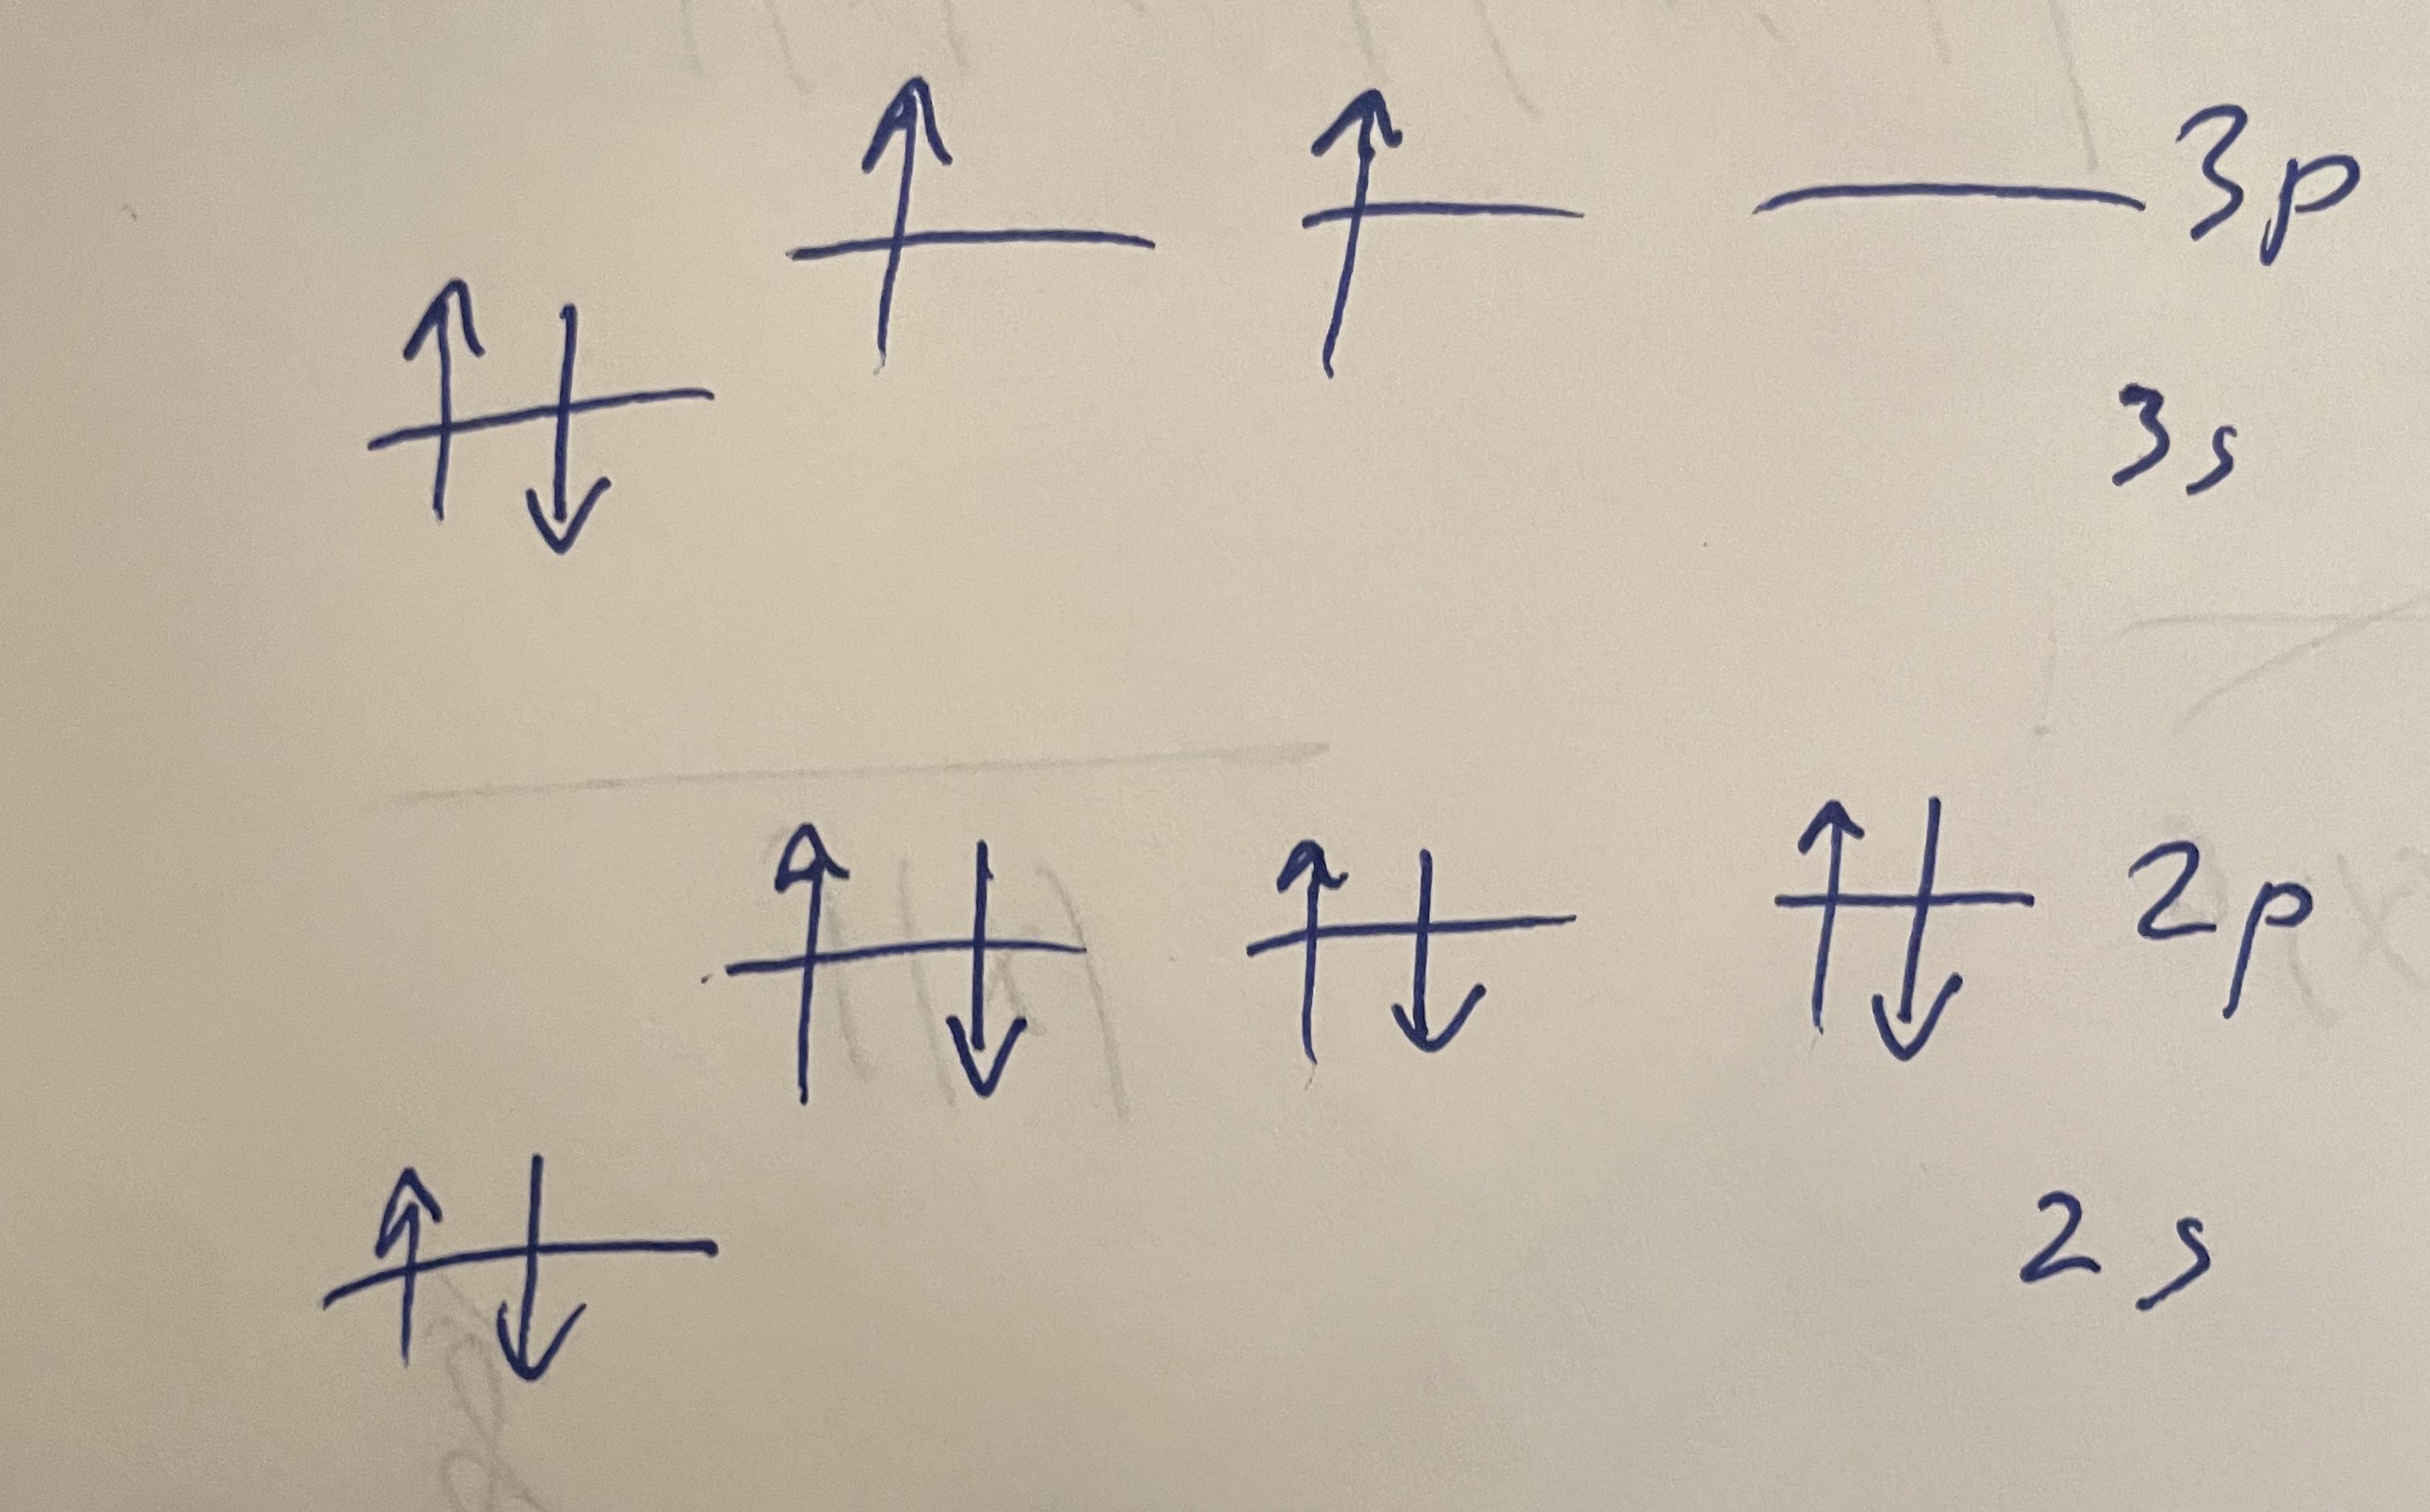 3p
3s
2p
2s